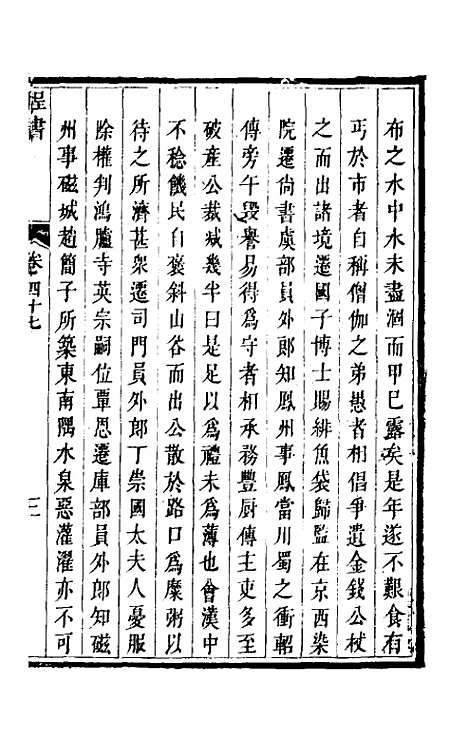 布之水中水未盡涸而甲已露矣是年遂不艱食有
丐於市者自稱僧伽之弟愚者相倡爭遺金錢公杖
之而出諸境遷國子博士賜緋魚袋歸監在京西染
院遷尚書虞部員外郎知鳳州事鳳當川蜀之衝軺
傳旁午毀譽易得爲守者相承務豐厨傳主吏多至
破産公裁减幾半曰是足以爲禮未爲薄也會漢中
不稔饑民自褒斜山谷而出公散於路口爲糜粥以
待之所濟甚衆遷司門員外郎丁崇國太夫人憂服
除權判鴻臚寺英宗嗣位覃恩遷庫部員外郎知磁
州事磁城趙簡子所築東南隅水泉惡灌濯亦不可
程書
卷四十七
三